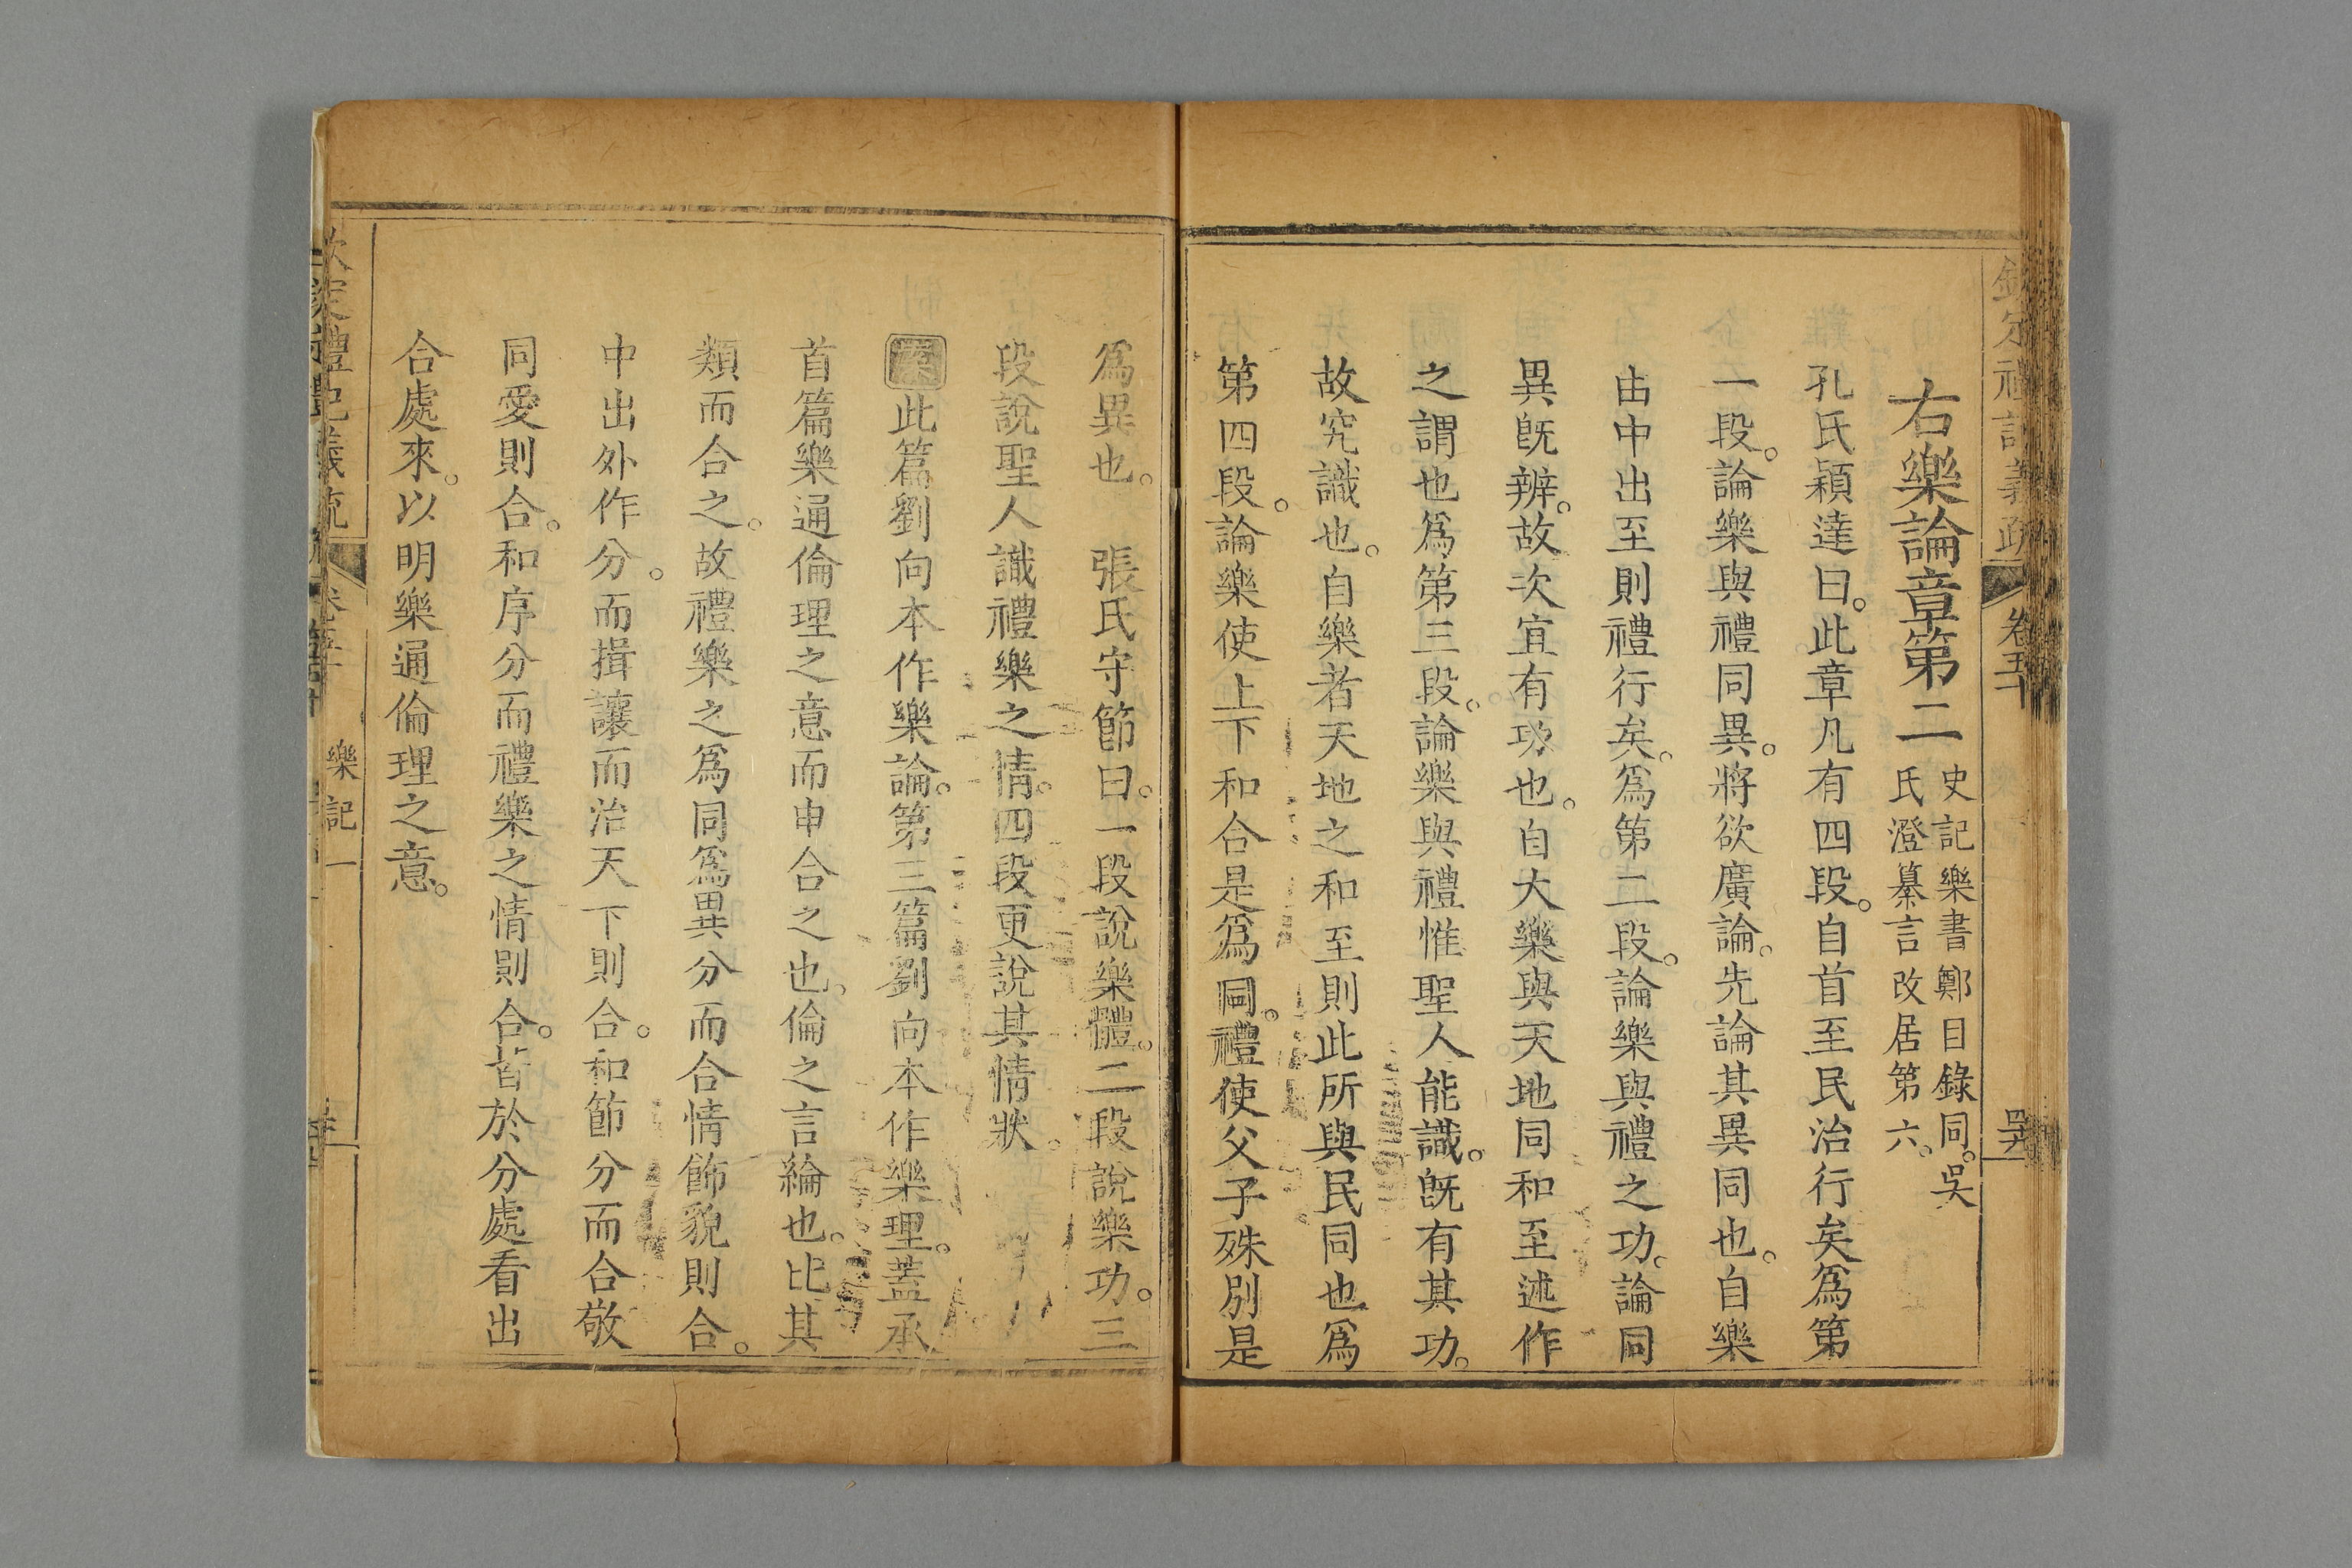 右樂論章第二
史記樂書鄭目錄同。吳
氏澄纂言改居第六。
孔氏穎達曰。此章凡有四段。自首至民治行矣爲第
一段。論樂與禮同異。將欲廣論。先論其異同也。自樂
由中出至則禮行矣。爲第二段。論樂與禮之功。論同
異旣辨。故次宜有功也。自大樂與天地同和至述作
之謂也爲第三段。論樂與禮惟聖人能識。旣有其功。
故究識也。自樂者天地之和至則此所與民同也爲
第四段。論樂使上下和合是爲同。禮使父子殊別是
爲異也。 張氏守節曰。一段說樂體。二段說樂功。三
段說聖人識禮樂之情。四段更說其情狀。
案此篇劉向本作樂論。第三篇劉向本作樂理。蓋承
首篇樂通倫理之意而申合之也。倫之言綸也。比其
類而合之。故禮樂之爲同爲異分而合情飾貌則合。
中出外作分。而揖讓而治天下則合。和節分而合敬
同愛則合。和序分而禮樂之情則合。皆於分處看出
合處來。以明樂通倫理之意。
欽定禮記義疏 卷五十 樂記一